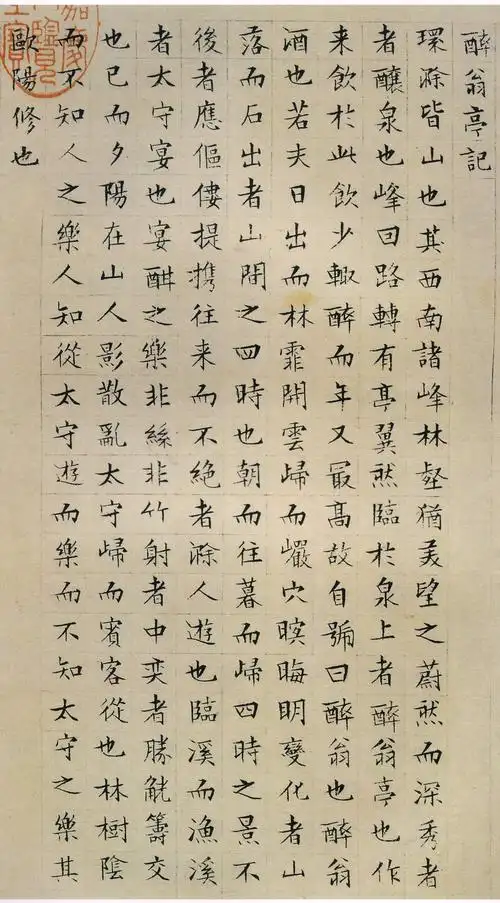 醉翁亭記
環滁皆山也其西南諸峰林壑猶美望之蔚然而深秀者
者釀泉也峰回路轉有亭翼然臨於泉上者醉翁亭也作
来飲於此飲少輒醉而年又最高故自號曰醉翁也醉翁
酒也若夫日出而林霏開雲歸而巖穴暝晦明變化者山
落而石出者山間之四時也朝而往暮而歸四時之景不
後者應傴僂提携往来而不絕者滁人遊也臨溪而漁溪
者太守宴也宴酣之樂非絲非竹射者中奕者勝觥籌交
也已而夕陽在山人影散亂太守歸而賓客從也林樹陰
而不知人之樂人知從太守遊而樂而不知太守之樂其
歐陽修也